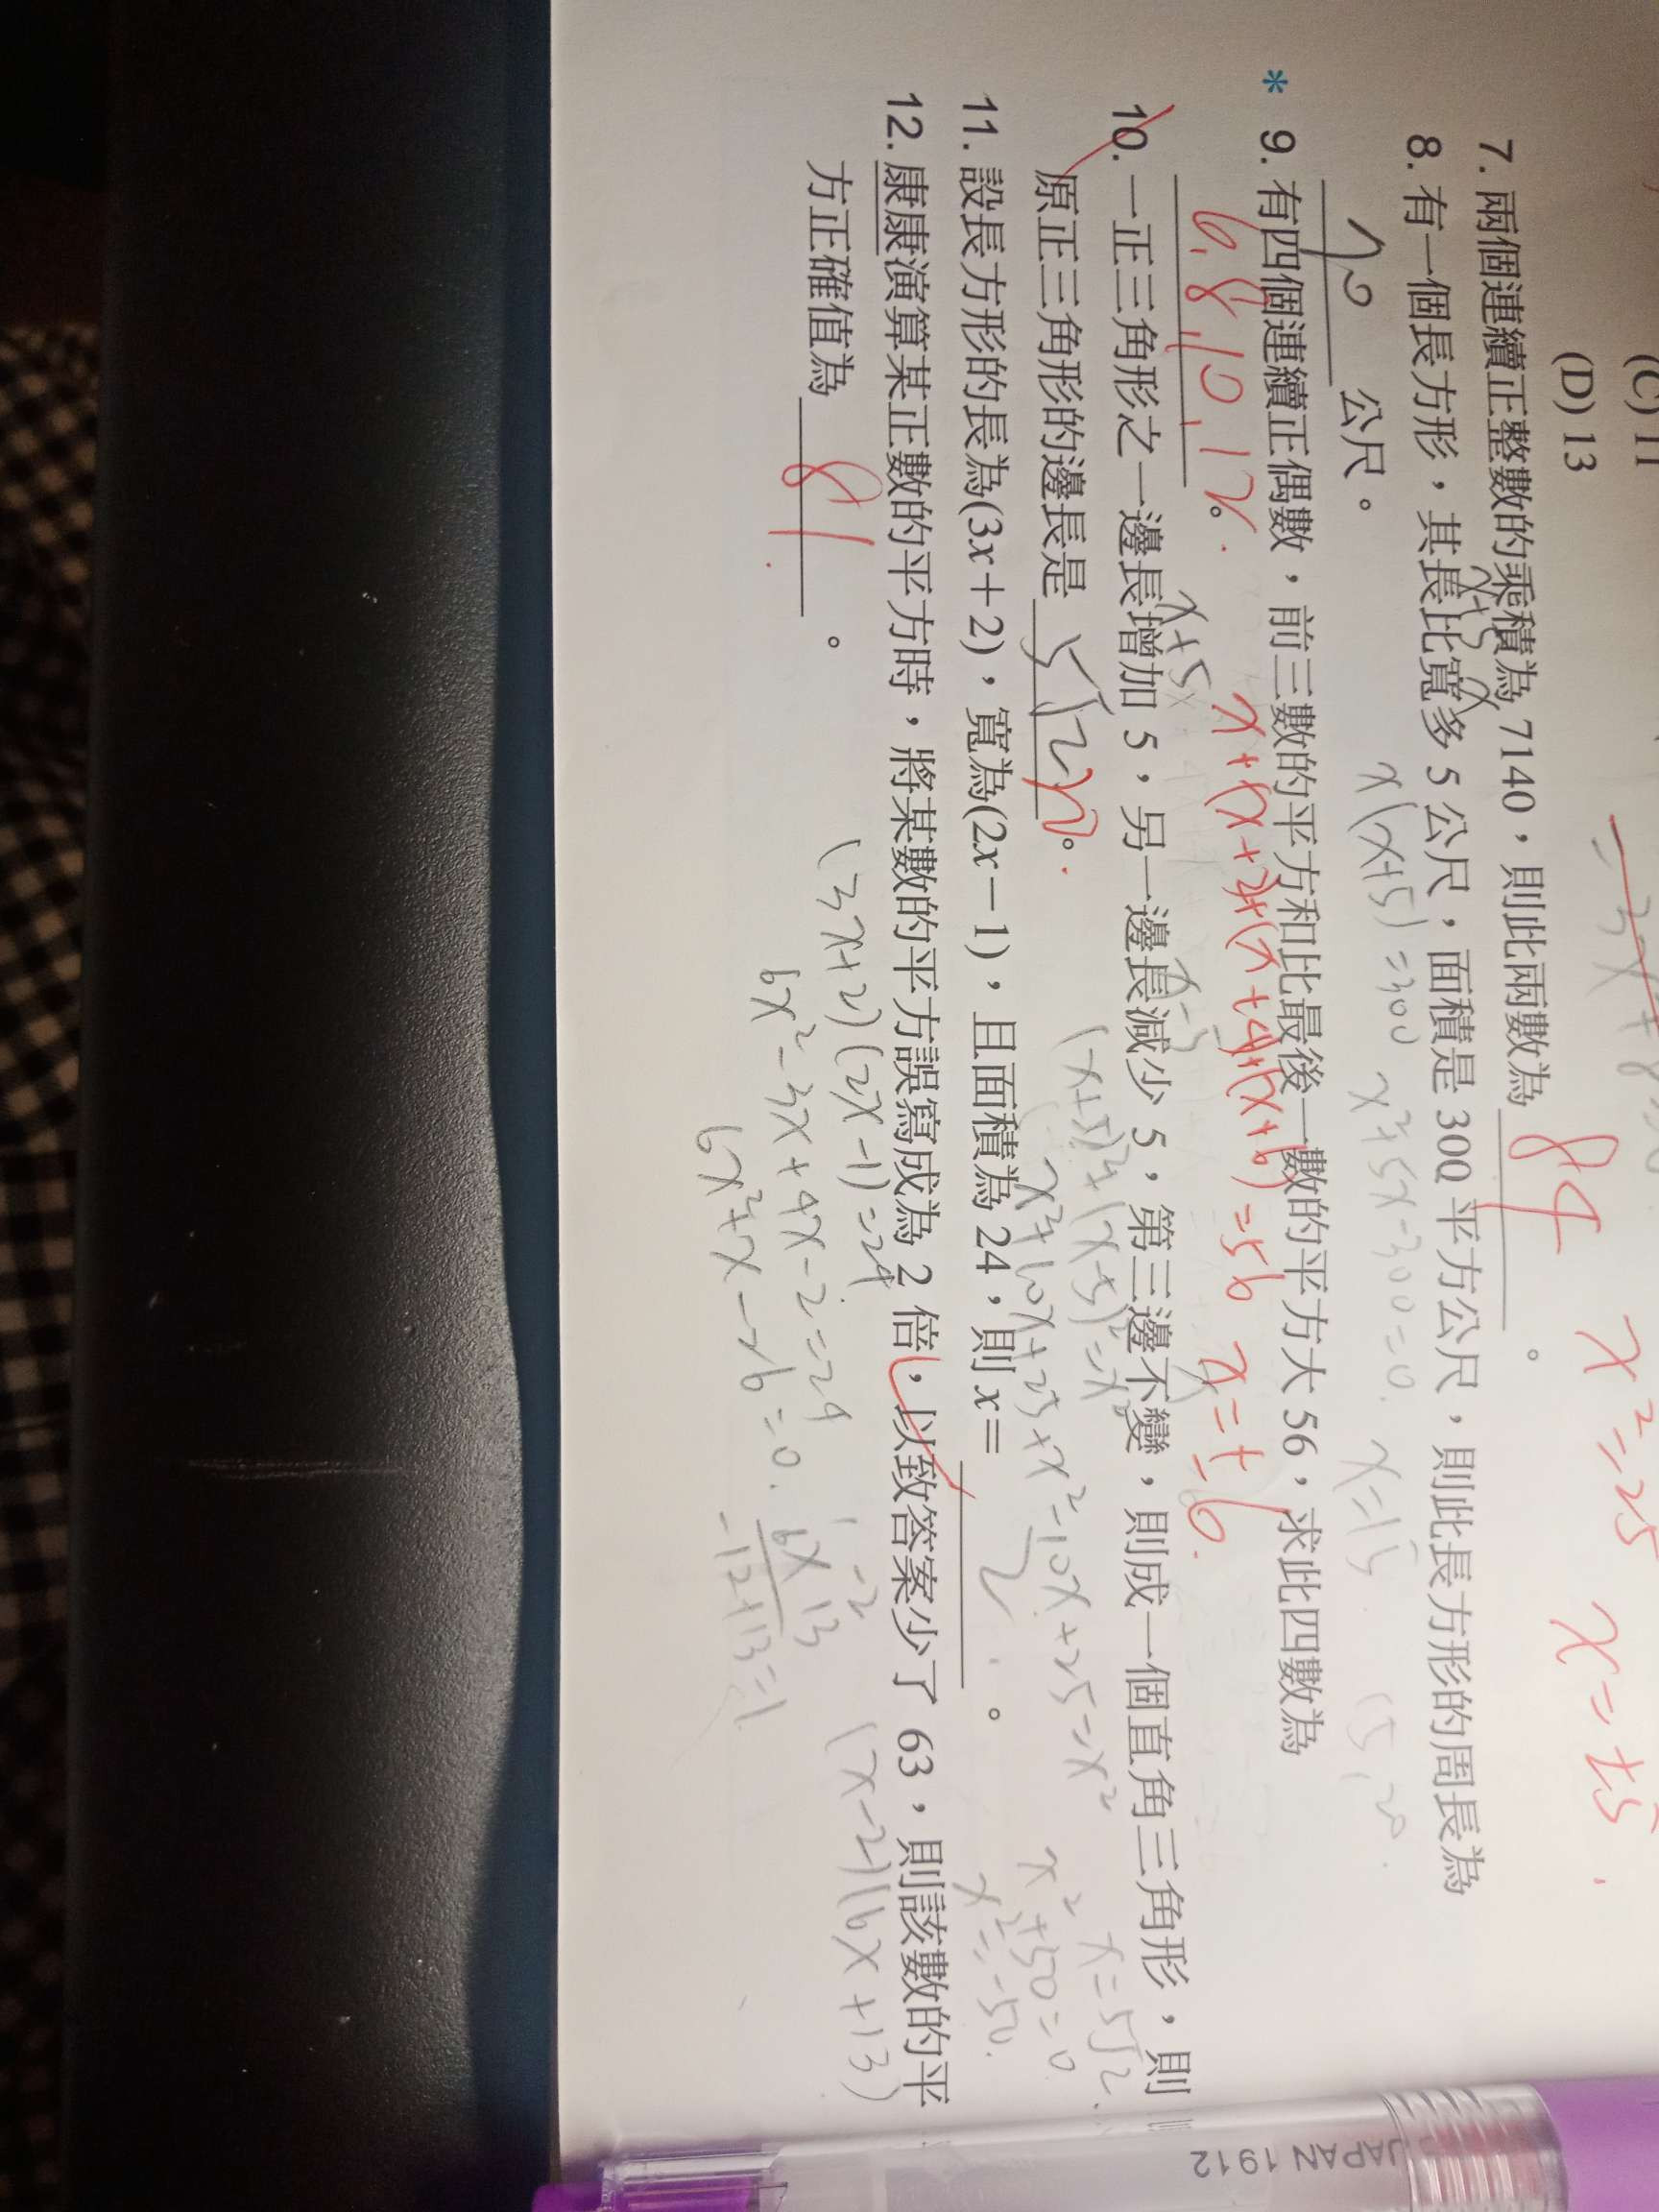 (C) 11
(D) 13
x²=25 x=±5.
7. 兩個連續正整數的乘積為 7140，則此兩數為 84 。
x+5 x
8. 有一個長方形，其長比寬多 5 公尺，面積是 300 平方公尺，則此長方形的周長為
70 公尺。
x(x+5)=300 x²+5x-300=0. x=15 15,20.
* 9. 有四個連續正偶數，前三數的平方和比最後一數的平方大 56，求此四數為
6,8,10,12。
x+(x+2)+(x+4)+(x+6)=56 x=±6.
x+5 x-5 x
10. 一正三角形之一邊長增加 5，另一邊長減少 5，第三邊不變，則成一個直角三角形，則
原正三角形的邊長是 20。
(x+5)²+(x-5)²=x² x=5√2.
x²+10x+25+x²-10x+25=x² x²+50=0
x²=-50.
11. 設長方形的長為(3x＋2)，寬為(2x－1)，且面積為 24，則 x＝ 2 。
12. 康康演算某正數的平方時，將某數的平方誤寫成為 2 倍，以致答案少了 63，則該數的平
方正確值為 81 。
(3x+2)(2x-1)=24
6x²-3x+4x-2=24
6x²+x-26=0.
1 -2
6 13
-12+13=1
(x-2)(6x+13)
JAPAN 1912